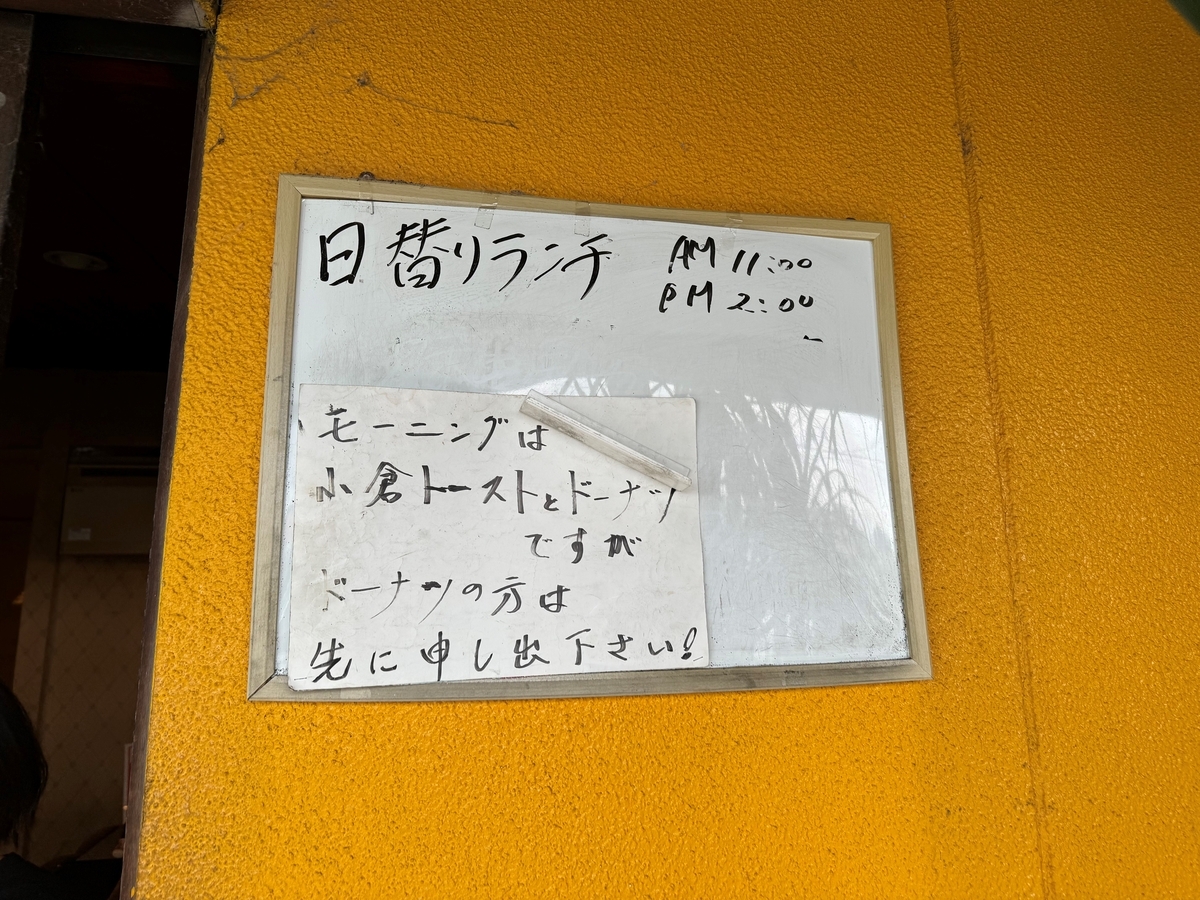 日替りランチ AM 11:00
PM 2:00
モーニングは
小倉トーストとドーナツ
ですが
ドーナツの方は
先に申し出下さい!